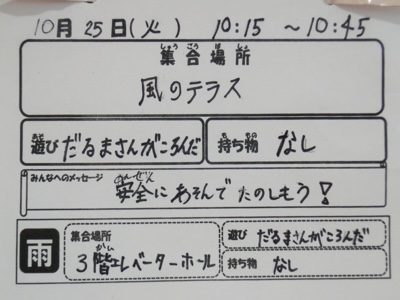 10月 25日(火) 10:15 ～10:45
しゅうごうばしょ
集合場所
風のテラス
あそ
遊び だるまさんがころんだ
も もの
持ち物 なし
みんなへのメッセージ
あんぜん
安全にあそんでたのしもう!
雨
集合場所
かい
3階エレベーターホール
遊び だるまさんがころんだ
持ち物 なし